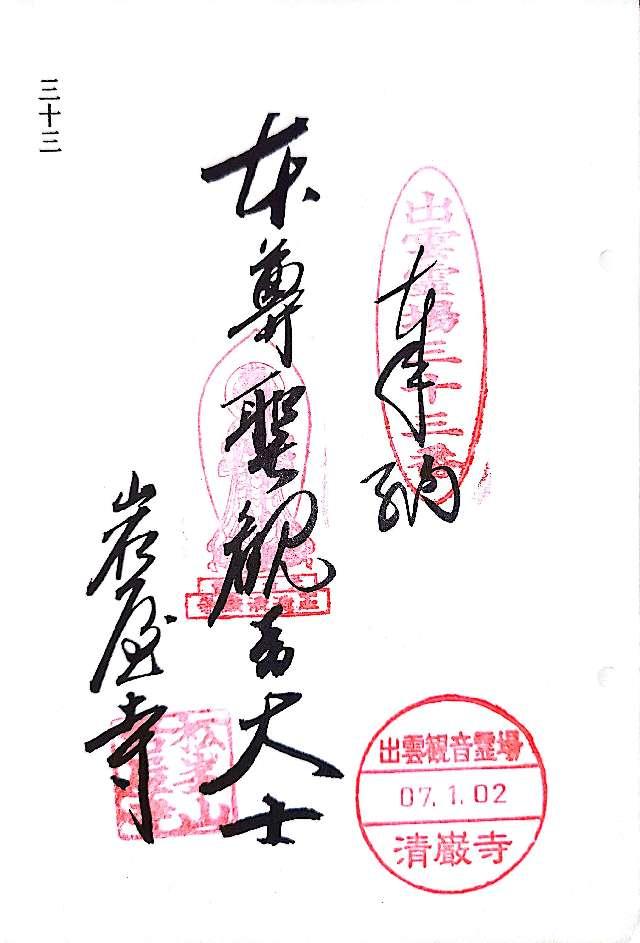 三十三
奉納
出雲霊場三十三番
本尊聖観音大士
岩屋寺
出雲観音霊場
07.1.02
清巌寺